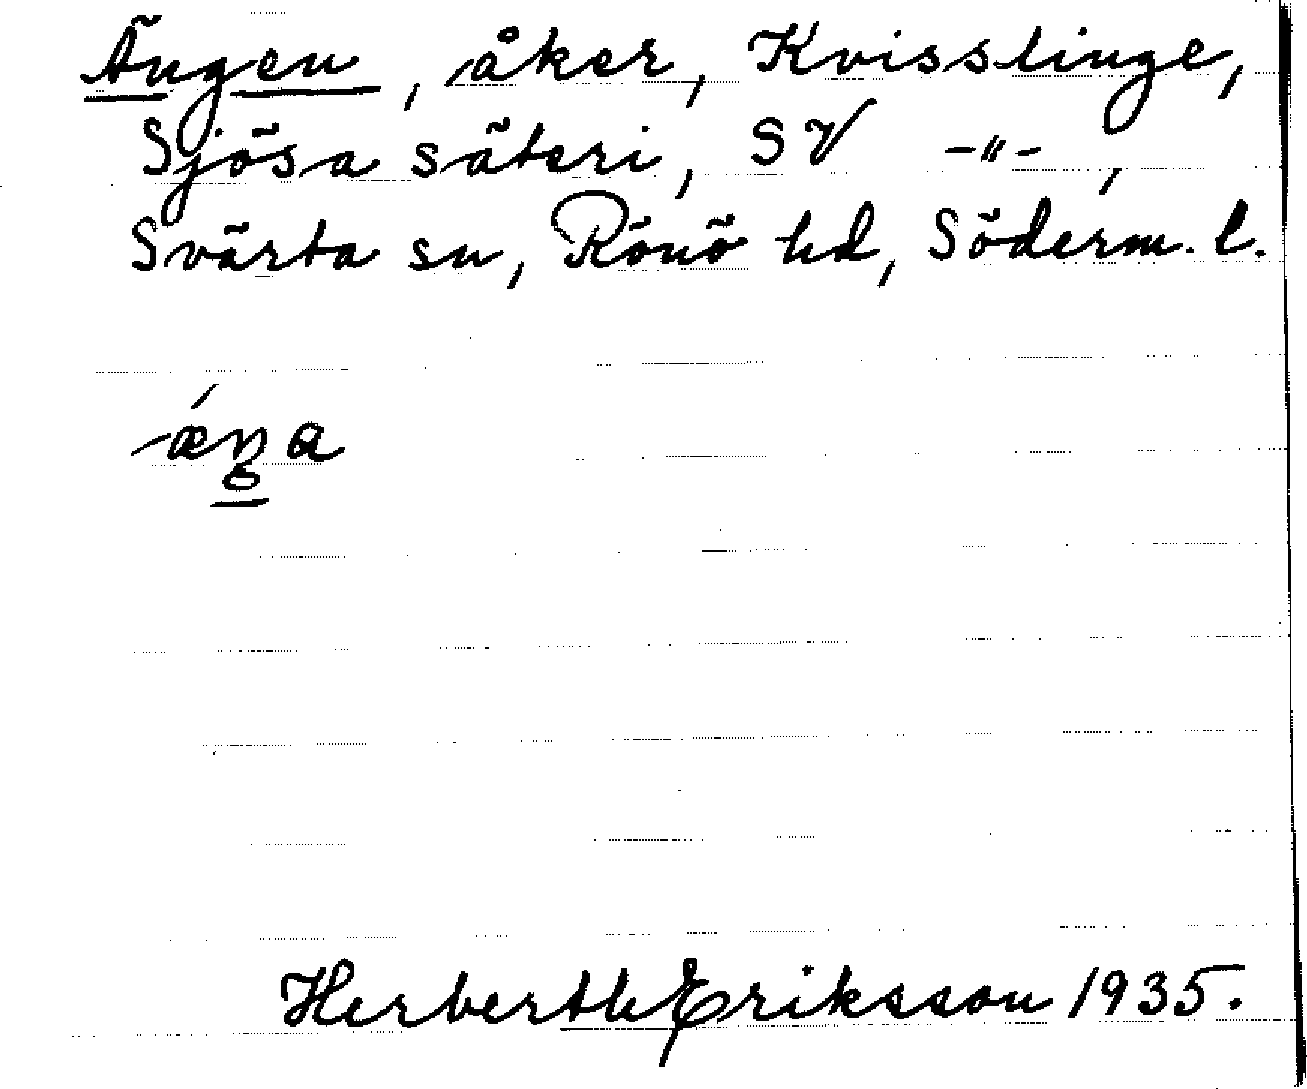 Ängen, åker, Kvisslinge,
Sjösa säteri, SV -"-,
Svärta sn, Rönö hd, Söderm. l.
ǽŋa
Herberth Eriksson 1935.